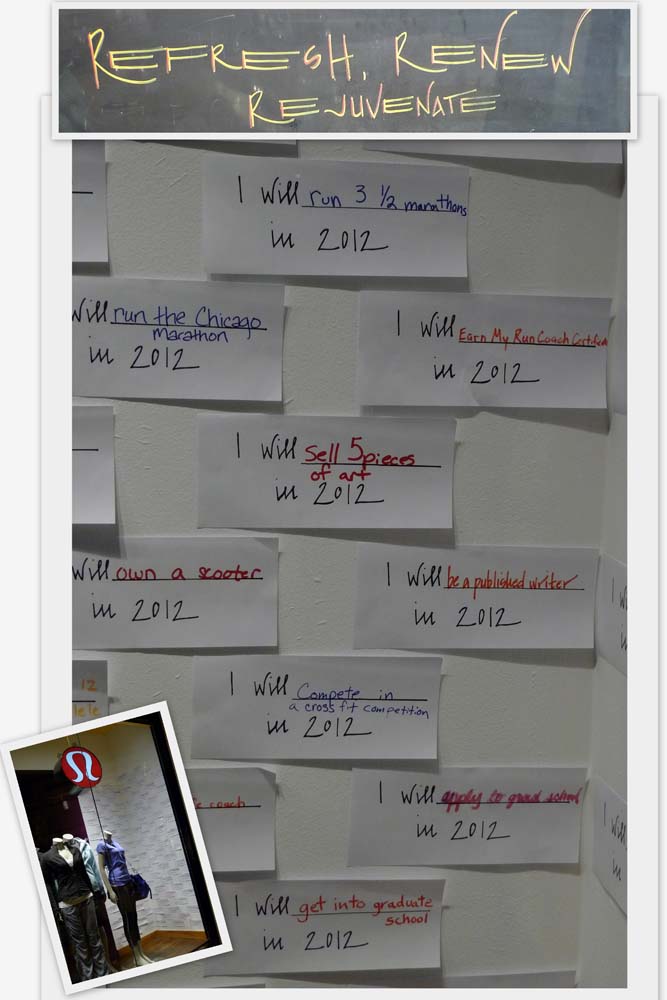 REFRESH, RENEW
REJUVENATE
I Will run 3 ½ marathons
in 2012
Will run the Chicago
marathon
in 2012
I Will Earn My Run Coach
in 2012
I Will Sell 5 pieces
of art
in 2012
Will own a scooter
in 2012
I Will be a published writer
in 2012
I Will Compete in
a cross fit competition
in 2012
12
coach
I Will apply to grad school
in 2012
I Will get into graduate
school
in 2012